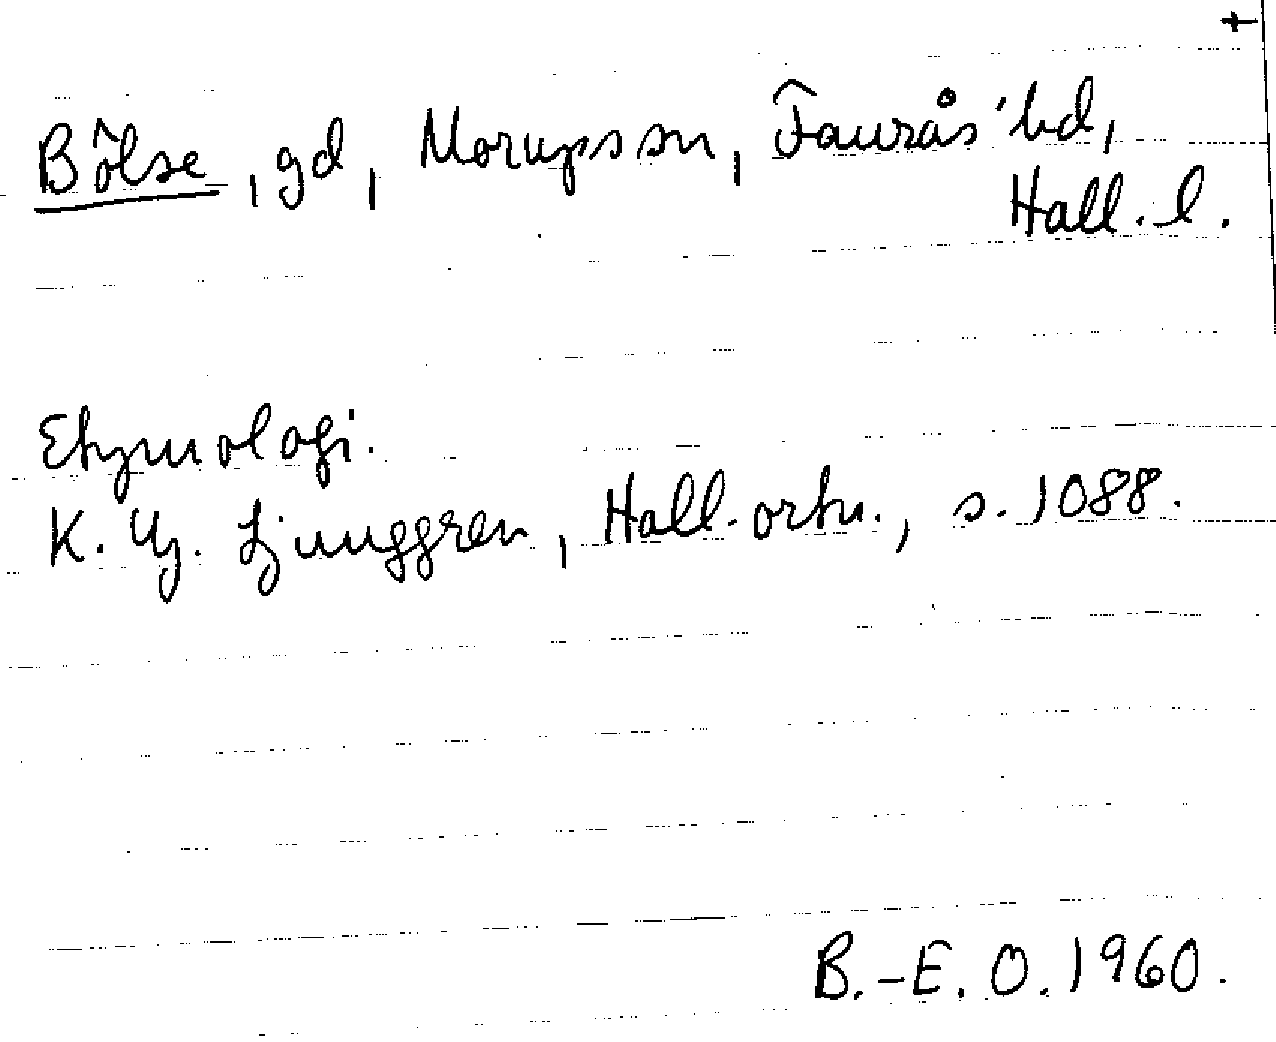 +
Bölse, gd, Morups sn, Faurås hd,
Hall. l.
Etymologi.
K. G. Ljunggren, Hall. ortn., s. 1088.
B.-E. O. 1960.